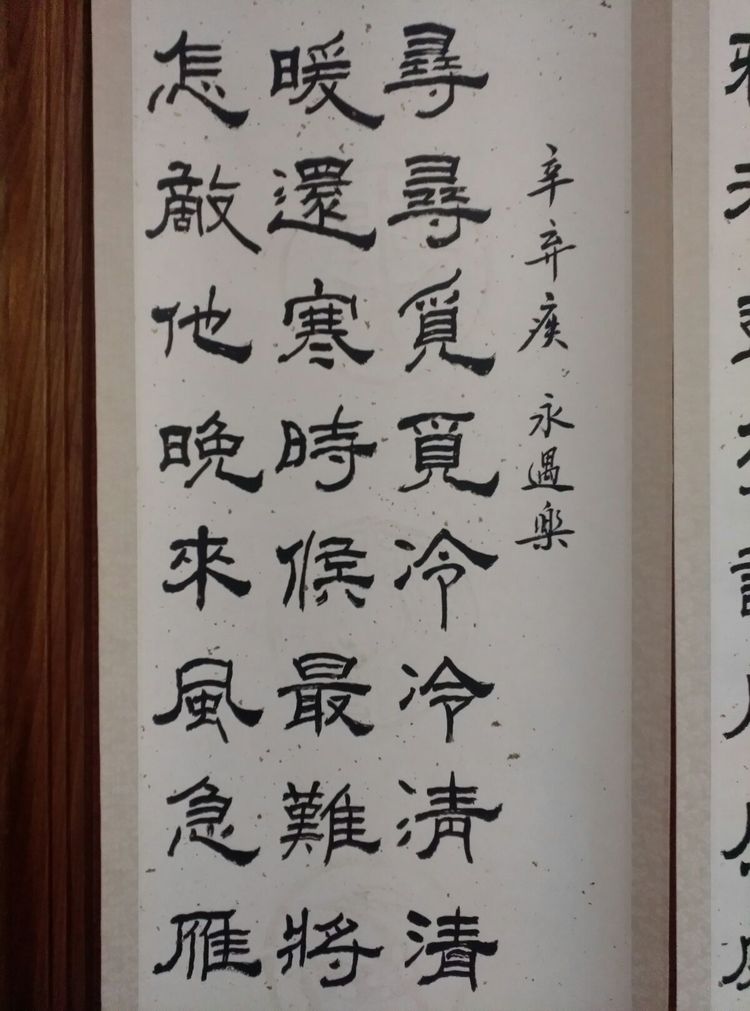 辛弃疾 永遇樂
尋尋覓覓冷冷清清
暖還寒時候最難將
怎敵他晚來風急雁